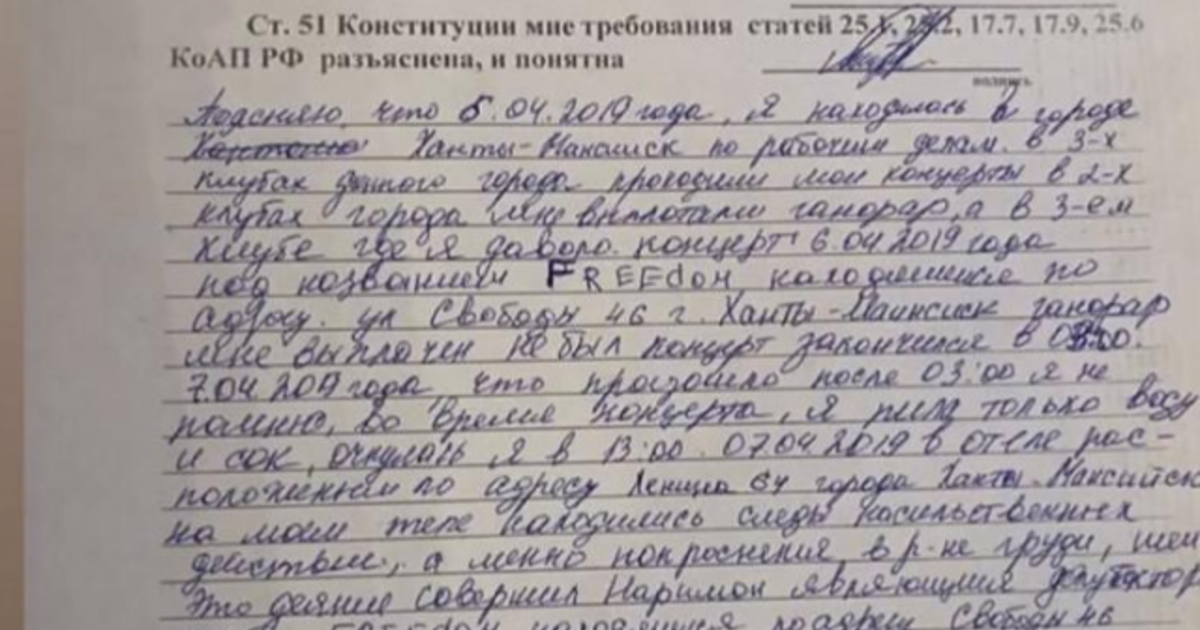 Ст. 51 Конституции мне требования статей 25.1, 25.2, 17.7, 17.9, 25.6
КоАП РФ разъяснена, и понятна
подпись
Поясняю, что 5.04.2019 года, я находилась в городе
Ханты-Мансийск по рабочим делам. в 3-х
клубах данного города проходили мои концерты в 2-х
клубах города мне выплатали ганорар, а в 3-ем
клубе где я давала концерт 6.04.2019 года
под названием FREEdOM находящимся по
адресу. ул Свободы 46 г. Ханты-Маинсиск ганорар
мне выплачен не был концерт закончился в
7.04.2019 года, что произошло после 03:00 я не
помню, во время концерта, я пила только воду
и сок, очнулась я в 13:00 07.04.2019 в отеле рас-
положенным по адресу Ленина 64 города Ханты-Мансийск
на моем теле находились следы насильственных
действий, а менно покраснения в р-не груди, шеи
Это деяние совершил Нариман являющийся
FREEdOM находящимся по адресу Свободы 46